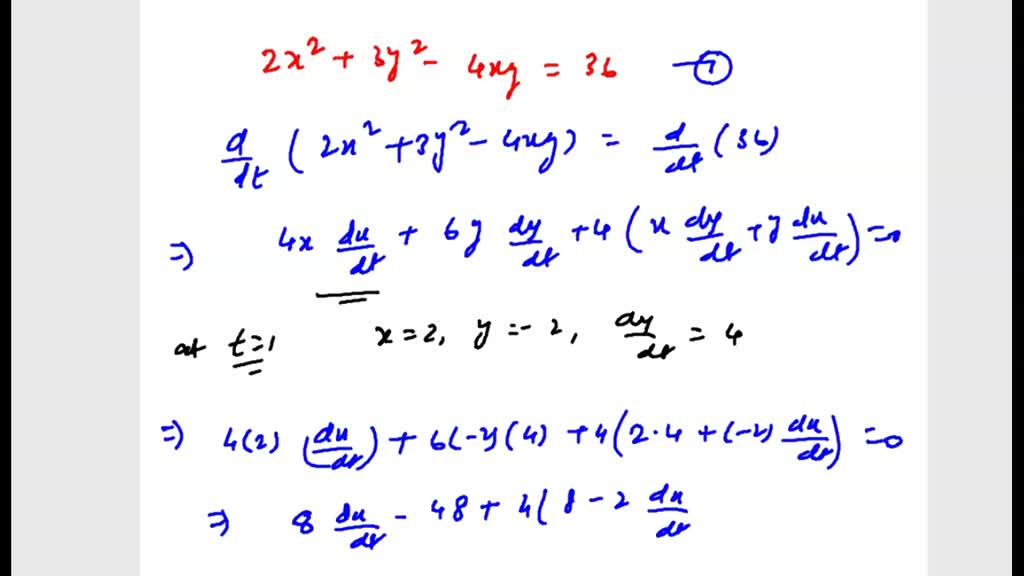 2x² + 3y² - 4xy = 36 —①
d/dt (2x² + 3y² - 4xy) = d/dt (36)
⇒ 4x dx/dt + 6y dy/dt + 4(x dy/dt + y dx/dt) = 0
at t=1 x=2, y=-2, dy/dt = 4
⇒ 4(2) (dx/dt) + 6(-2)(4) + 4(2·4 + (-2) dx/dt) = 0
⇒ 8 dx/dt - 48 + 4(8 - 2 dx/dt